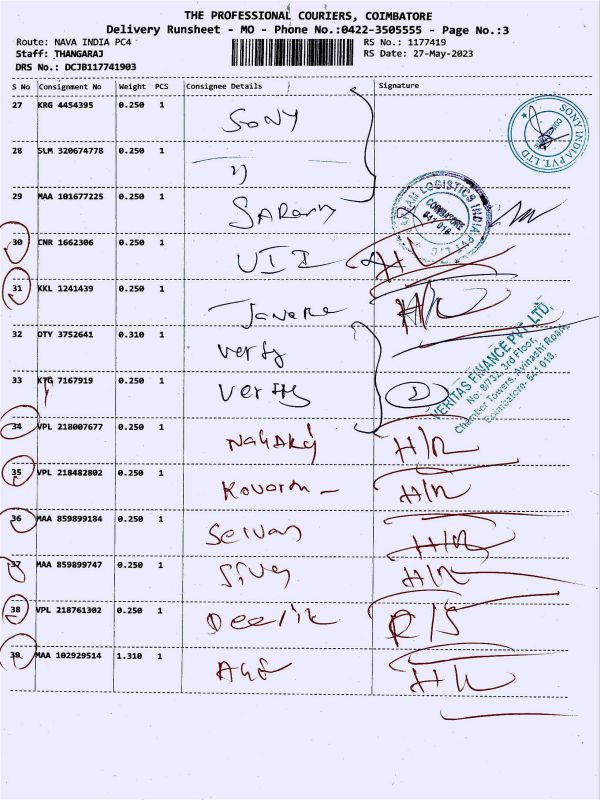 THE PROFESSIONAL COURIERS, COIMBATORE
Delivery Runsheet - MO - Phone No.:0422-3505555 - Page No.:3
Route: NAVA INDIA PC4 RS No.: 1177419
Staff: THANGARAJ RS Date: 27-May-2023
DRS No.: DCJB117741903
S No Consignment No Weight PCS Consignee Details Signature
27 KRG 4454395 0.250 1 SONY
SONY INDIA PVT. LTD
28 SLM 320674778 0.250 1
29 MAA 101677225 0.250 1
LOGISTICS INDIA PVT
COIMBATORE
641 018
30 CNR 1662306 0.250 1
31 KKL 1241439 0.250 1
32 DTY 3752641 0.310 1
VERITAS FINANCE PVT LTD,
No: 8/732, 3rd Floor,
Chamber Towers, Avinashi Road,
Coimbatore- 641 018.
33 KTG 7167919 0.250 1
34 VPL 218007677 0.250 1 H/R
35 VPL 218482802 0.250 1 H/R
36 MAA 859899184 0.250 1 H/R
37 MAA 859899747 0.250 1 Siva H/R
38 VPL 218761302 0.250 1 R/S
39 MAA 102929514 1.310 1